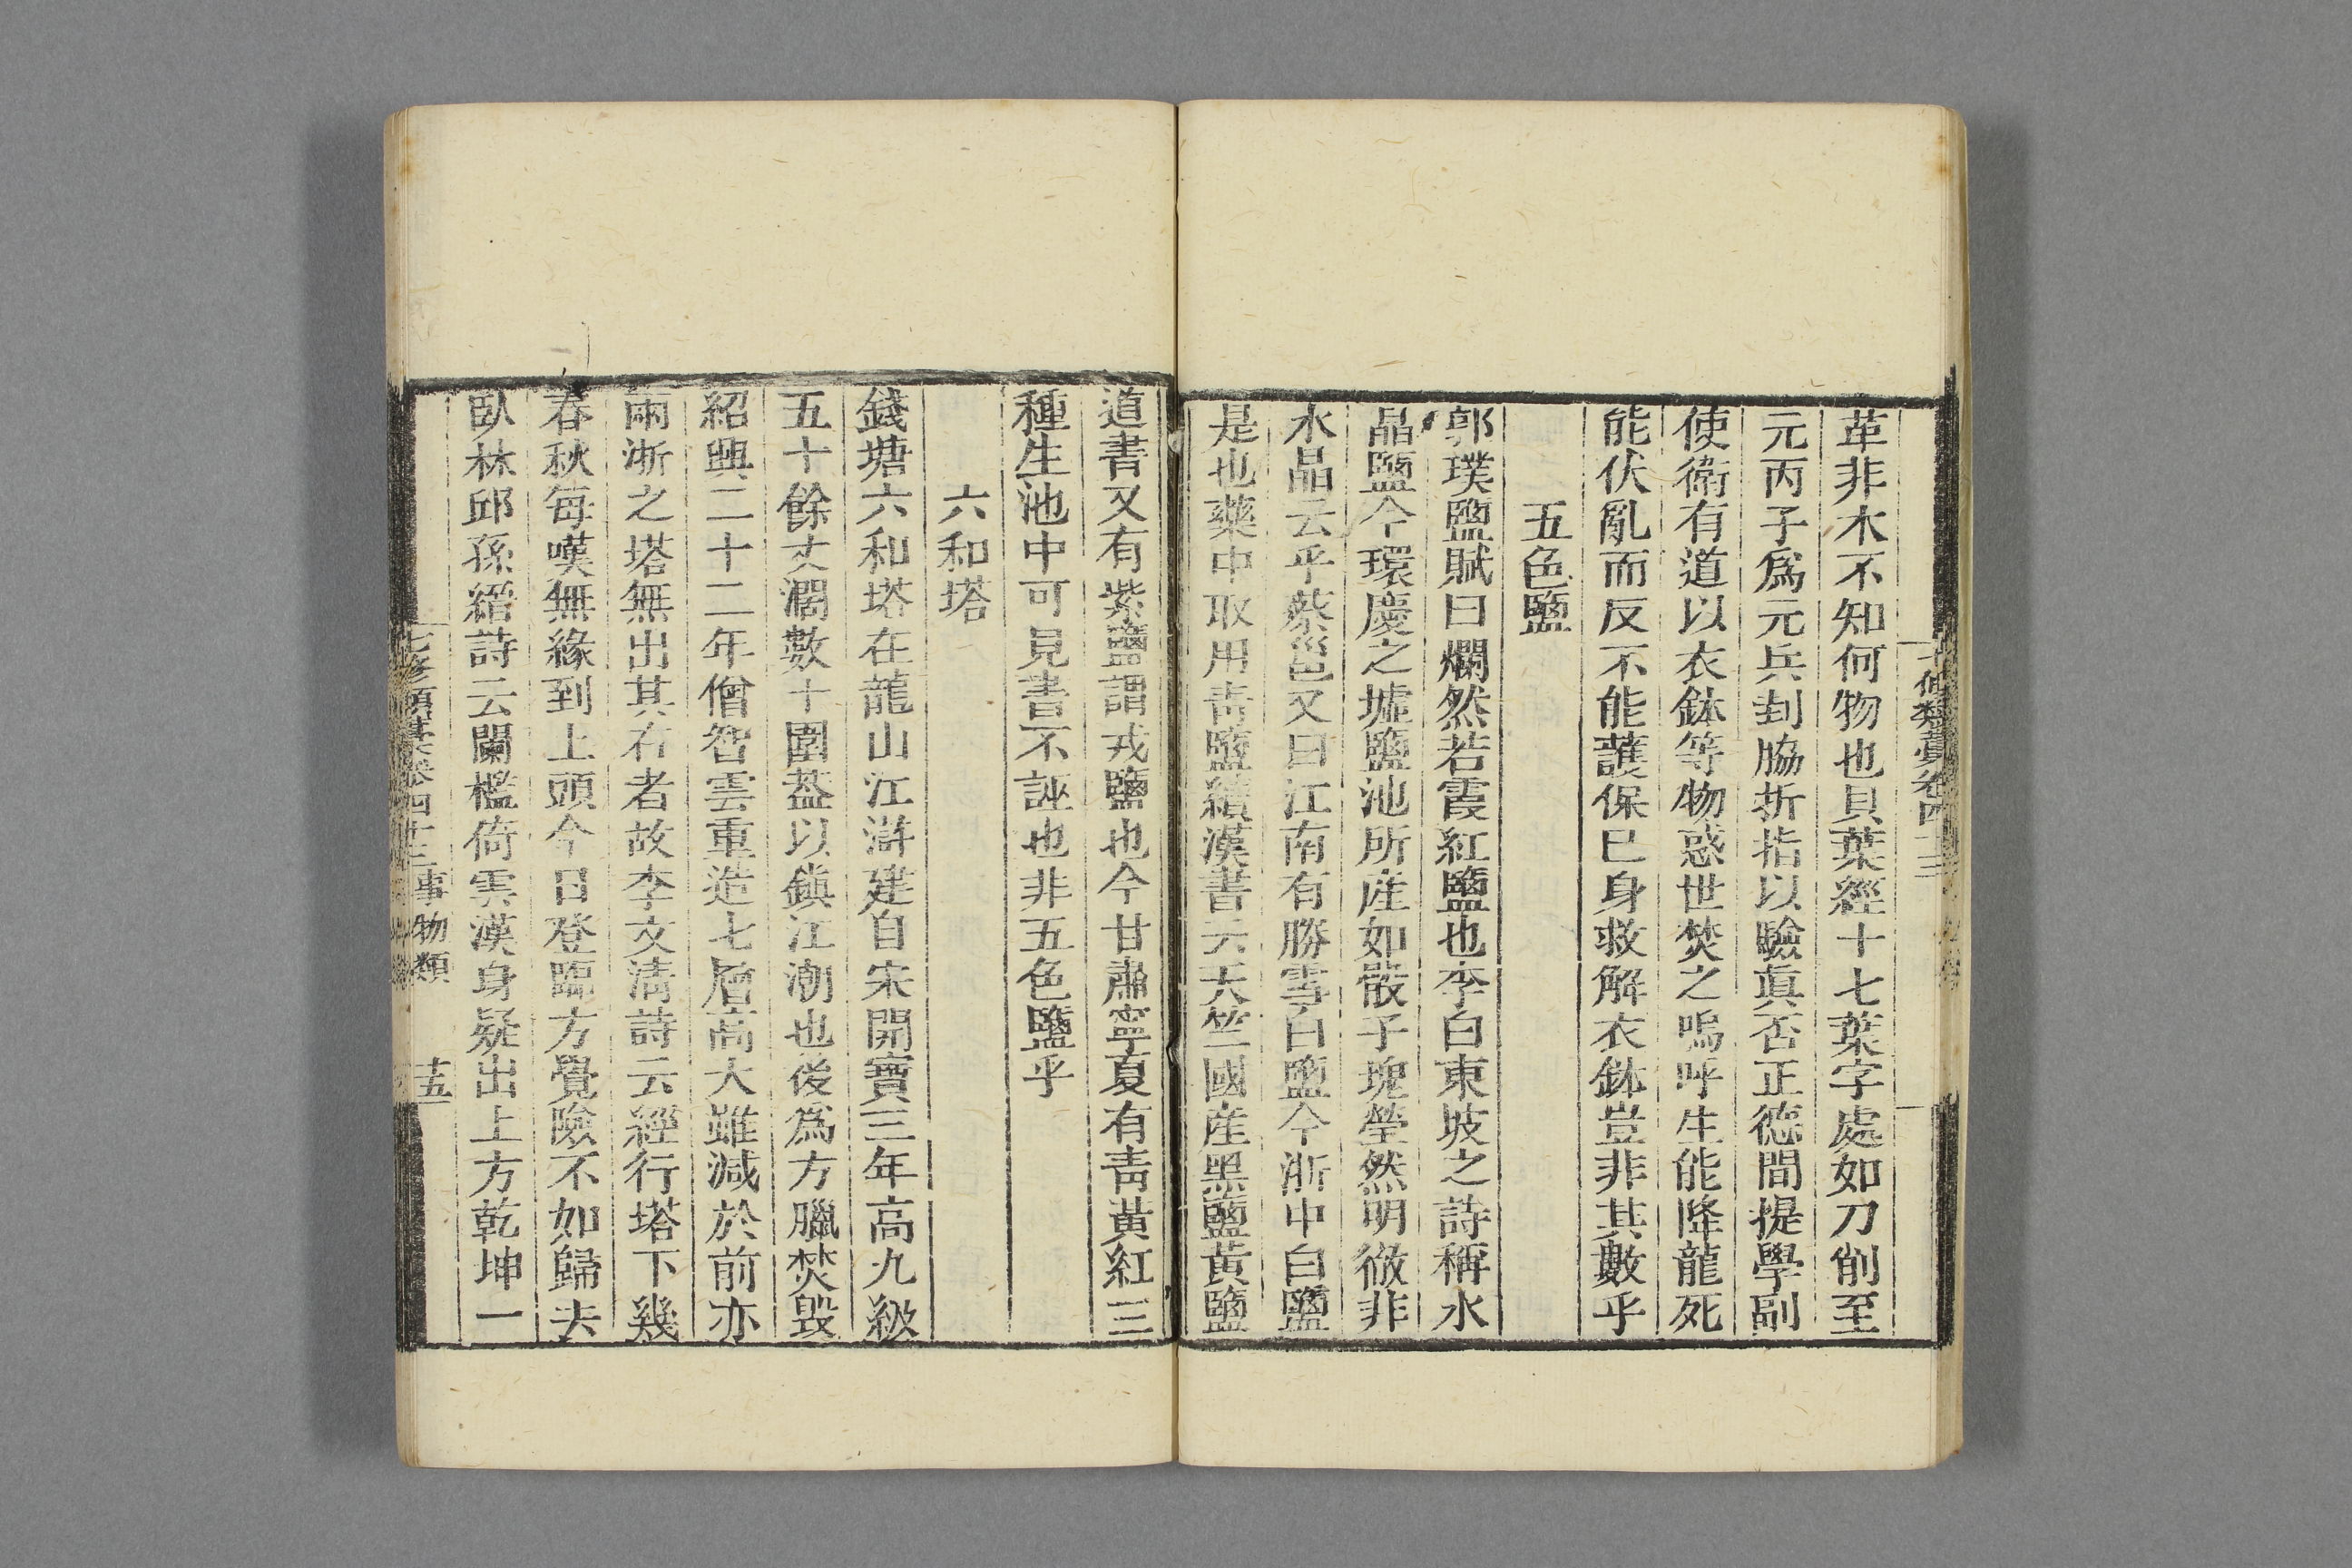 革非木不知何物也貝葉經十七葉字處如刀削至
元丙子爲元兵刲脇折指以驗眞否正德間提學副
使衛有道以衣鉢等物惑世焚之嗚呼生能降龍死
能伏亂而反不能護保巳身救解衣鉢豈非其數乎
五色鹽
郭璞鹽賦曰爛然若霞紅鹽也李白東坡之詩稱水
晶鹽今環慶之墟鹽池所産如骰子塊瑩然明徹非
水晶云乎蔡邕又曰江南有勝雪白鹽今浙中白鹽
是也藥中取用青鹽續漢書云天竺國産黑鹽黃鹽
道書又有紫鹽謂戎鹽也今甘肅寧夏有青黃紅三
種生池中可見書不誣也非五色鹽乎
六和塔
錢塘六和塔在龍山江滸建自宋開寶三年高九級
五十餘丈濶數十圍葢以鎮江潮也後爲方臘焚毀
紹興二十二年僧智雲重造七層高大雖減於前亦
兩浙之塔無出其右者故李文清詩云經行塔下幾
春秋每嘆無緣到上頭今日登臨方覺險不如歸去
臥林邱孫縉詩云闌檻倚雲漢身疑出上方乾坤一
七修類藁卷四十三事物類 十五